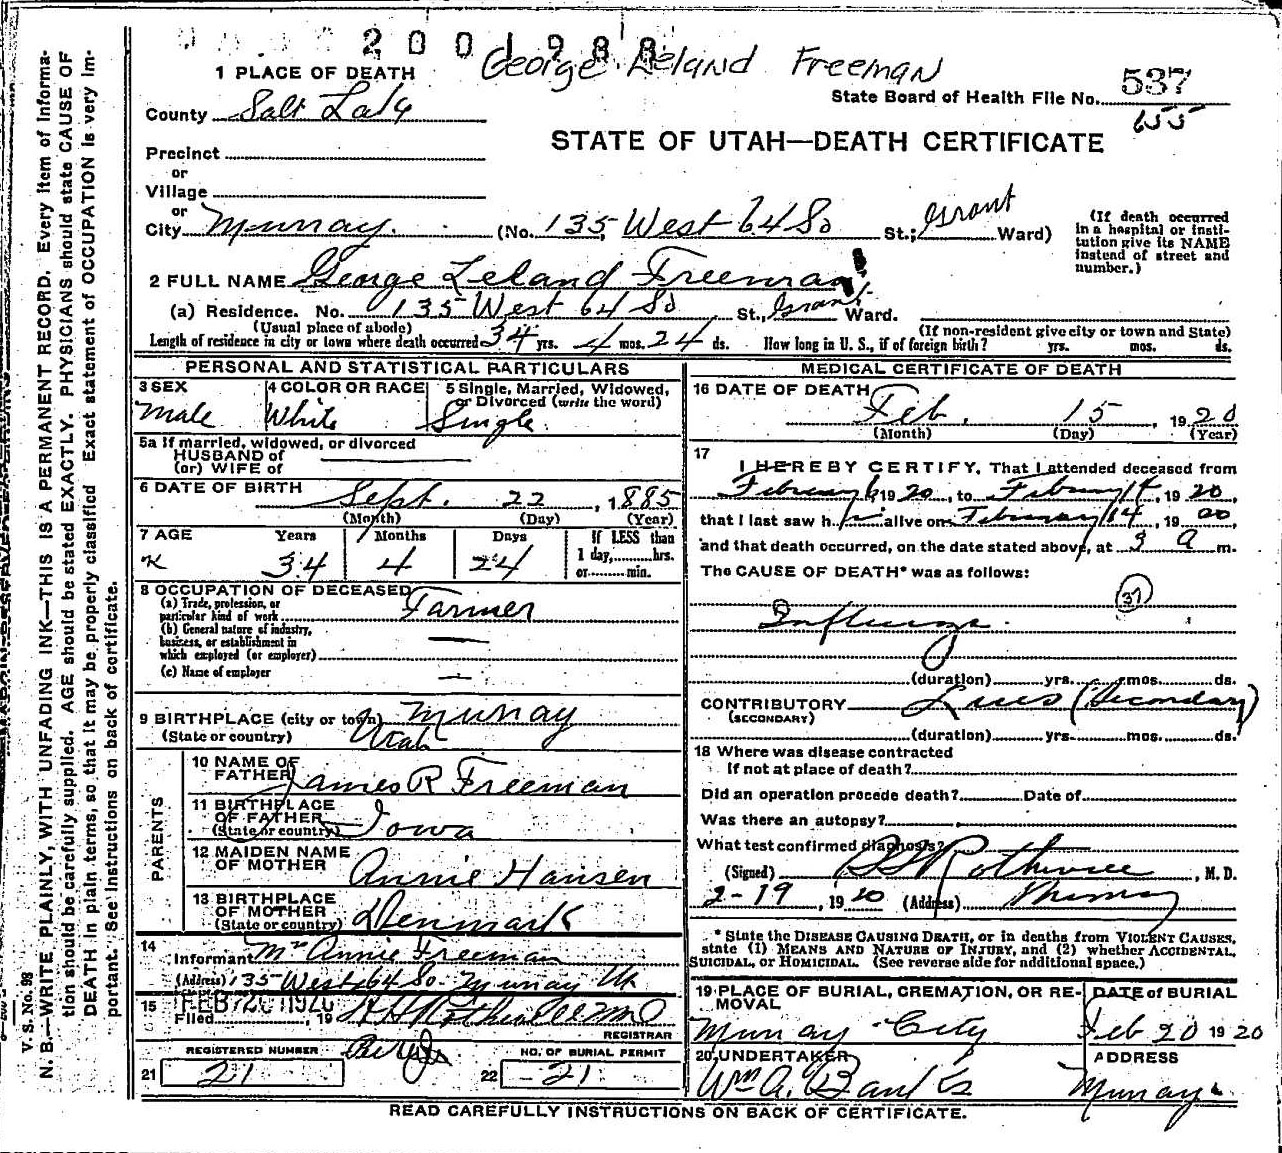 2001988
George Leland Freeman
1 PLACE OF DEATH
State Board of Health File No. 537
655
County Salt Lake
STATE OF UTAH—DEATH CERTIFICATE
Precinct
or
Village
or
City Murray. (No. 135, West 64 So St.; Grant Ward)
(If death occurred in a hospital or institution give its NAME instead of street and number.)
2 FULL NAME George Leland Freeman
(a) Residence. No. 135 West 64 So St., Grant Ward.
(Usual place of abode) (If non-resident give city or town and State)
Length of residence in city or town where death occurred 34 yrs. 4 mos. 24 ds. How long in U. S., if of foreign birth? yrs. mos. ds.
PERSONAL AND STATISTICAL PARTICULARS
3 SEX
Male
4 COLOR OR RACE
White
5 Single, Married, Widowed, or Divorced (write the word)
Single.
5a If married, widowed, or divorced
HUSBAND of
(or) WIFE of
6 DATE OF BIRTH Sept. 22, 1885
(Month) (Day) (Year)
7 AGE Years Months Days If LESS than
34 4 24 1 day, hrs.
or min.
8 OCCUPATION OF DECEASED
(a) Trade, profession, or
particular kind of work Farmer
(b) General nature of industry,
business, or establishment in
which employed (or employer)
(c) Name of employer
9 BIRTHPLACE (city or town) Murray
(State or country) Utah
PARENTS
10 NAME OF FATHER James R Freeman
11 BIRTHPLACE OF FATHER (State or country) Iowa
12 MAIDEN NAME OF MOTHER Annie Hansen
13 BIRTHPLACE OF MOTHER (State or country) Denmark
14
Informant Mrs Annie Freeman
(Address) 135 West 64 So. Murray Ut
15 FEB 20 1920
Filed, 19
REGISTRAR
REGISTERED NUMBER
21 21
NO. OF BURIAL PERMIT
22 21
MEDICAL CERTIFICATE OF DEATH
16 DATE OF DEATH Feb. 15, 1920
(Month) (Day) (Year)
17
I HEREBY CERTIFY, That I attended deceased from
February 6, 1920, to February 14, 1920,
that I last saw him alive on February 14, 1920,
and that death occurred, on the date stated above, at 3 a m.
The CAUSE OF DEATH* was as follows:
37
Influenza.
(duration) yrs. mos. ds.
CONTRIBUTORY Lues (Secondary)
(SECONDARY)
(duration) yrs. mos. ds.
18 Where was disease contracted
If not at place of death?
Did an operation precede death? Date of
Was there an autopsy?
What test confirmed diagnosis?
(Signed), M. D.
2-19, 1920 (Address) Murray
* State the DISEASE CAUSING DEATH, or in deaths from VIOLENT CAUSES,
state (1) MEANS AND NATURE OF INJURY, and (2) whether ACCIDENTAL,
SUICIDAL, or HOMICIDAL. (See reverse side for additional space.)
19 PLACE OF BURIAL, CREMATION, OR REMOVAL
Murray City
DATE of BURIAL
Feb 20 1920
20 UNDERTAKER
Wm A. Banks
ADDRESS
Murray
READ CAREFULLY INSTRUCTIONS ON BACK OF CERTIFICATE.
V. S. No. 98
N. B.—WRITE PLAINLY, WITH UNFADING INK—THIS IS A PERMANENT RECORD. Every item of Informa-
tion should be carefully supplied. AGE should be stated EXACTLY. PHYSICIANS should state CAUSE OF
DEATH in plain terms, so that it may be properly classified Exact statement of OCCUPATION is very Im-
portant. See Instructions on back of certificate.